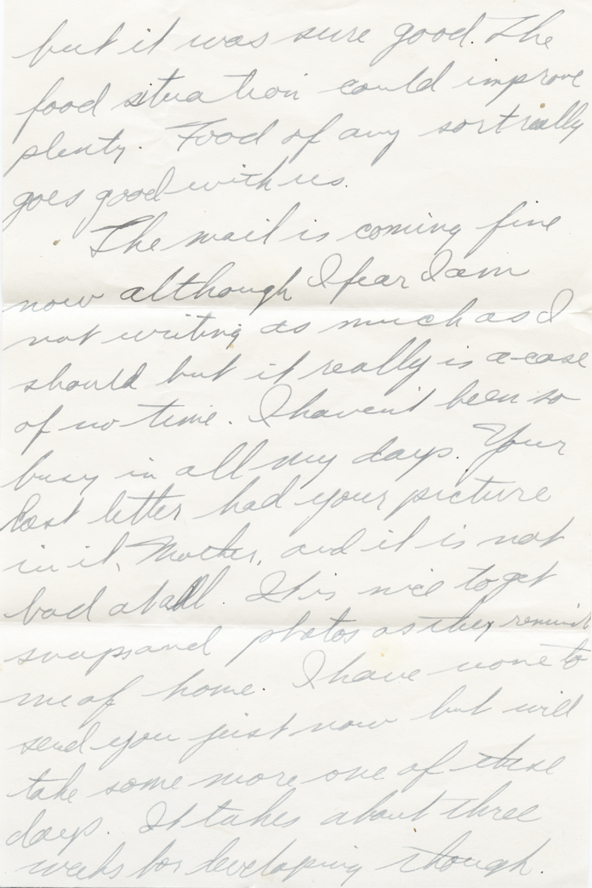 but it was sure good. The
food situation could improve
plenty. Food of any sort really
goes good with us.
The mail is coming fine
now although I fear I am
not writing as much as I
should but it really is a case
of no time. I haven't been so
busy in all my days. Your
last letter had your picture
in it, Mother, and it is not
bad atall. It is nice to get
snaps and photos as they remind
me of home. I have none to
send you just now but will
take some more one of these
days. It takes about three
weeks for developing though.